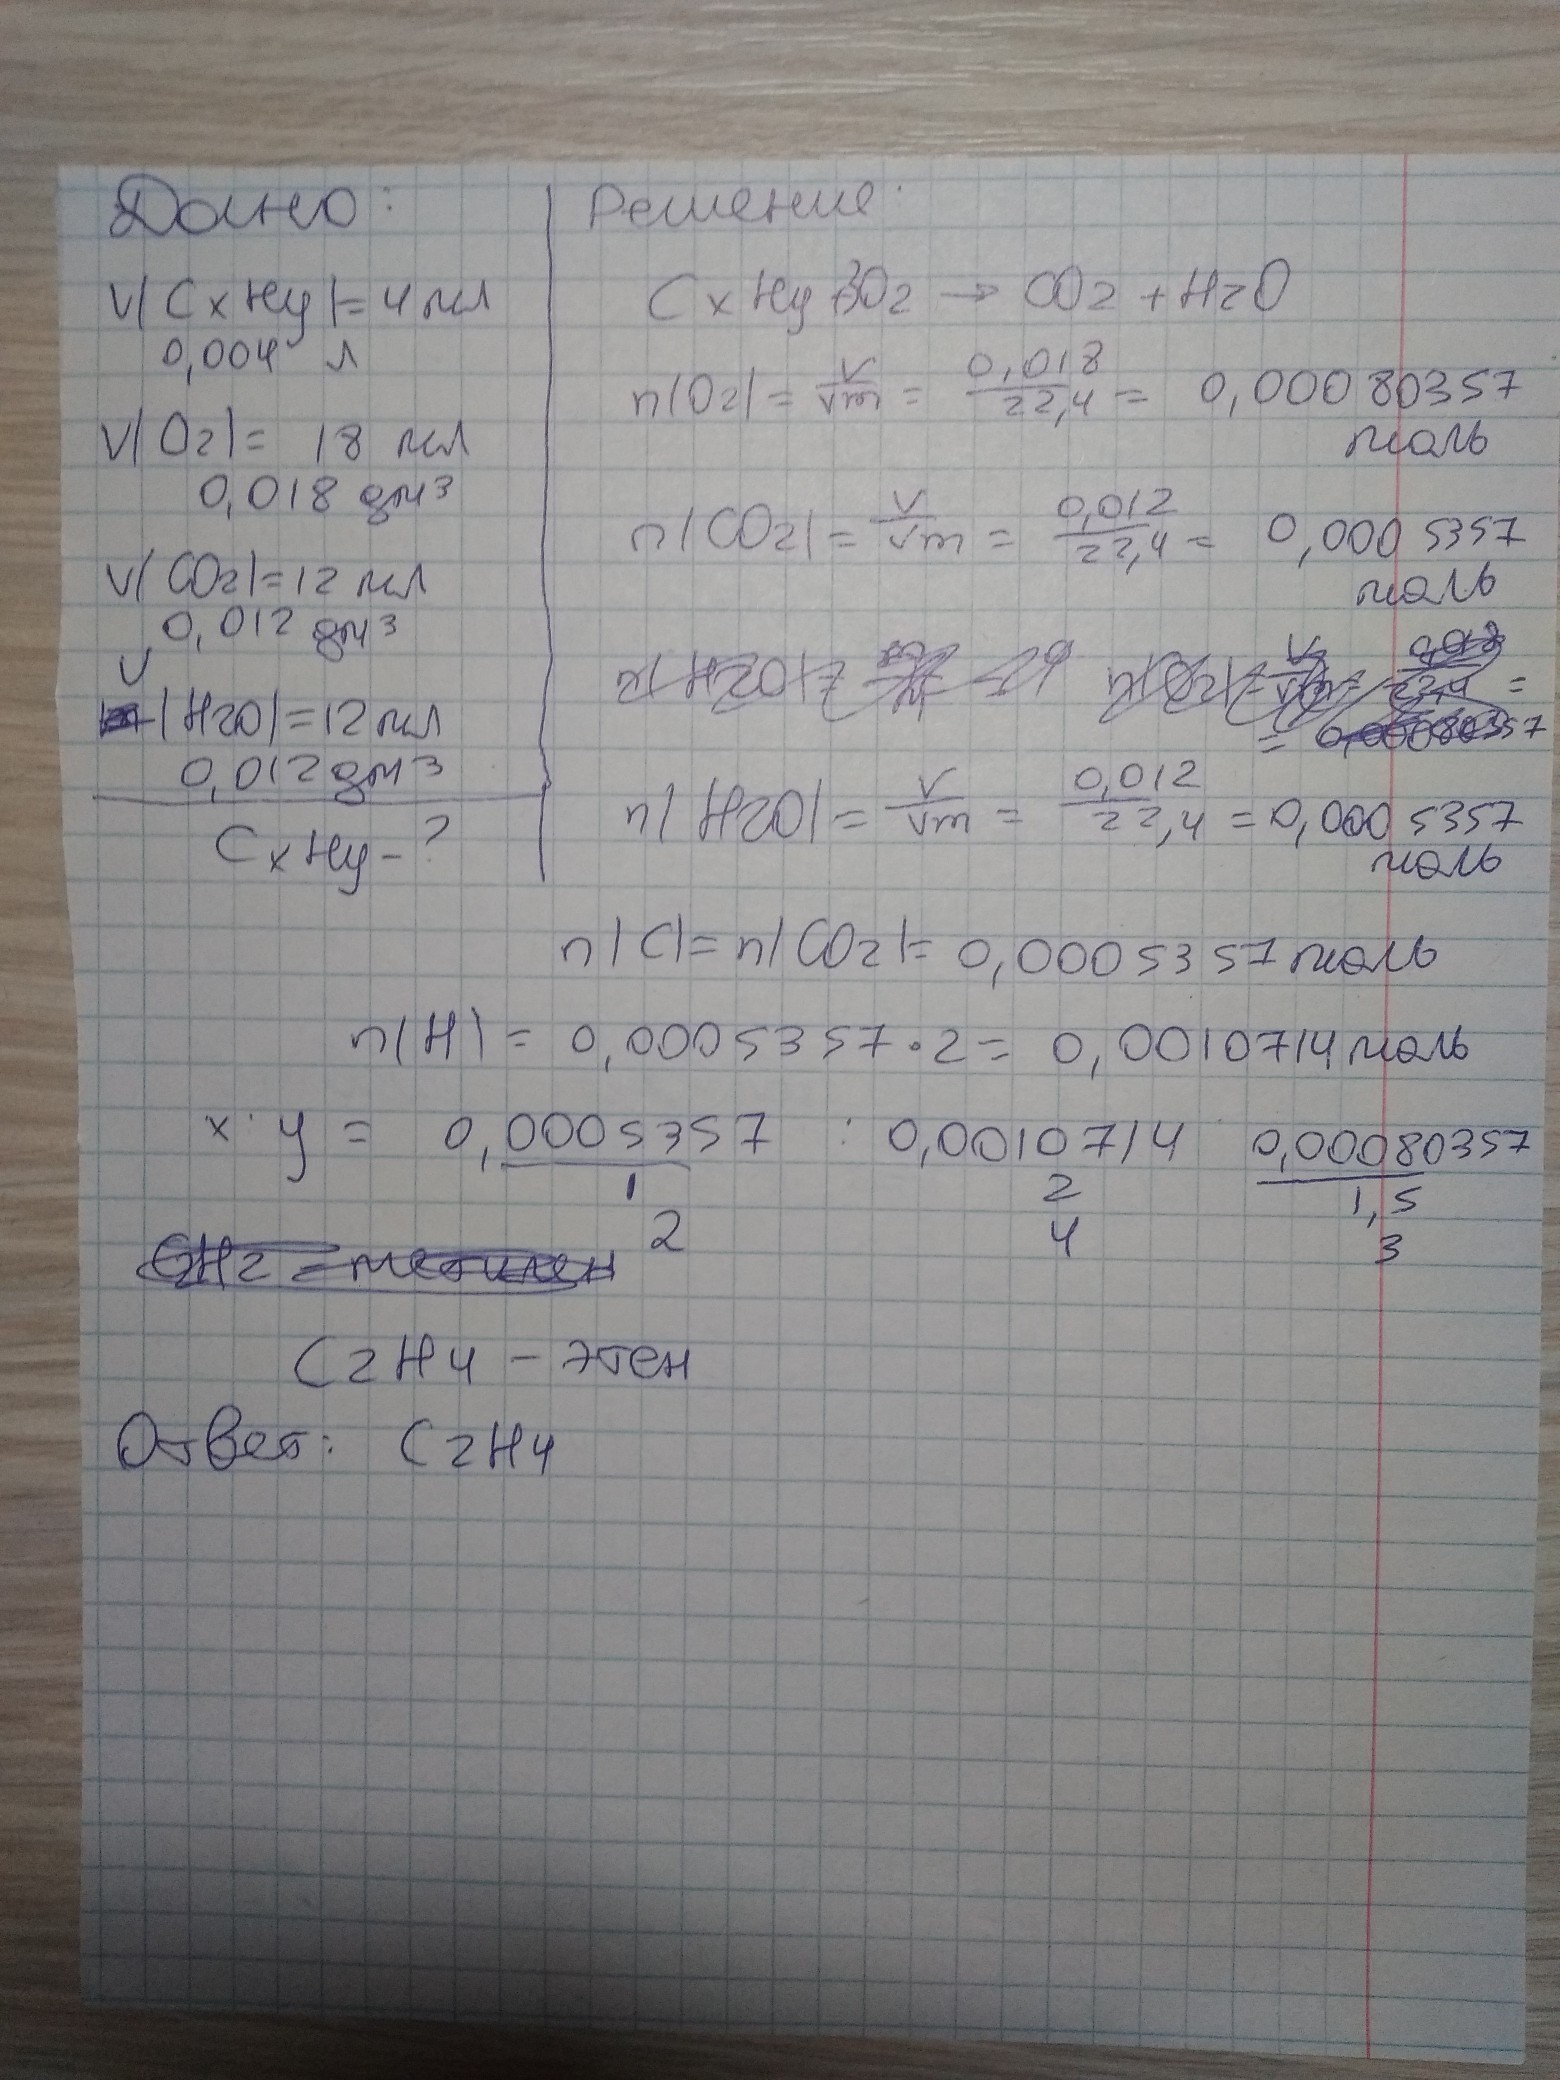 Дано:
V(CxHy)=4 мл
0,004 л
V(O2)= 18 мл
0,018 дм3
V(CO2)=12 мл
0,012 дм3
V
(H2O)=12 мл
0,012 дм3
CxHy-?
Решение:
CxHy+3O2 → CO2 + H2O
n(O2)= V/Vm = 0,018/22,4 = 0,00080357
моль
n(CO2)= V/Vm = 0,012/22,4 = 0,0005357
моль
n(H2O)= V/Vm = 0,012/22,4 = 0,0005357
моль
n(C)=n(CO2)= 0,0005357 моль
n(H) = 0,0005357·2= 0,0010714 моль
x:y = 0,0005357 : 0,0010714 0,00080357
1 2 1,5
2 4 3
C2H4 - этен
Ответ: C2H4